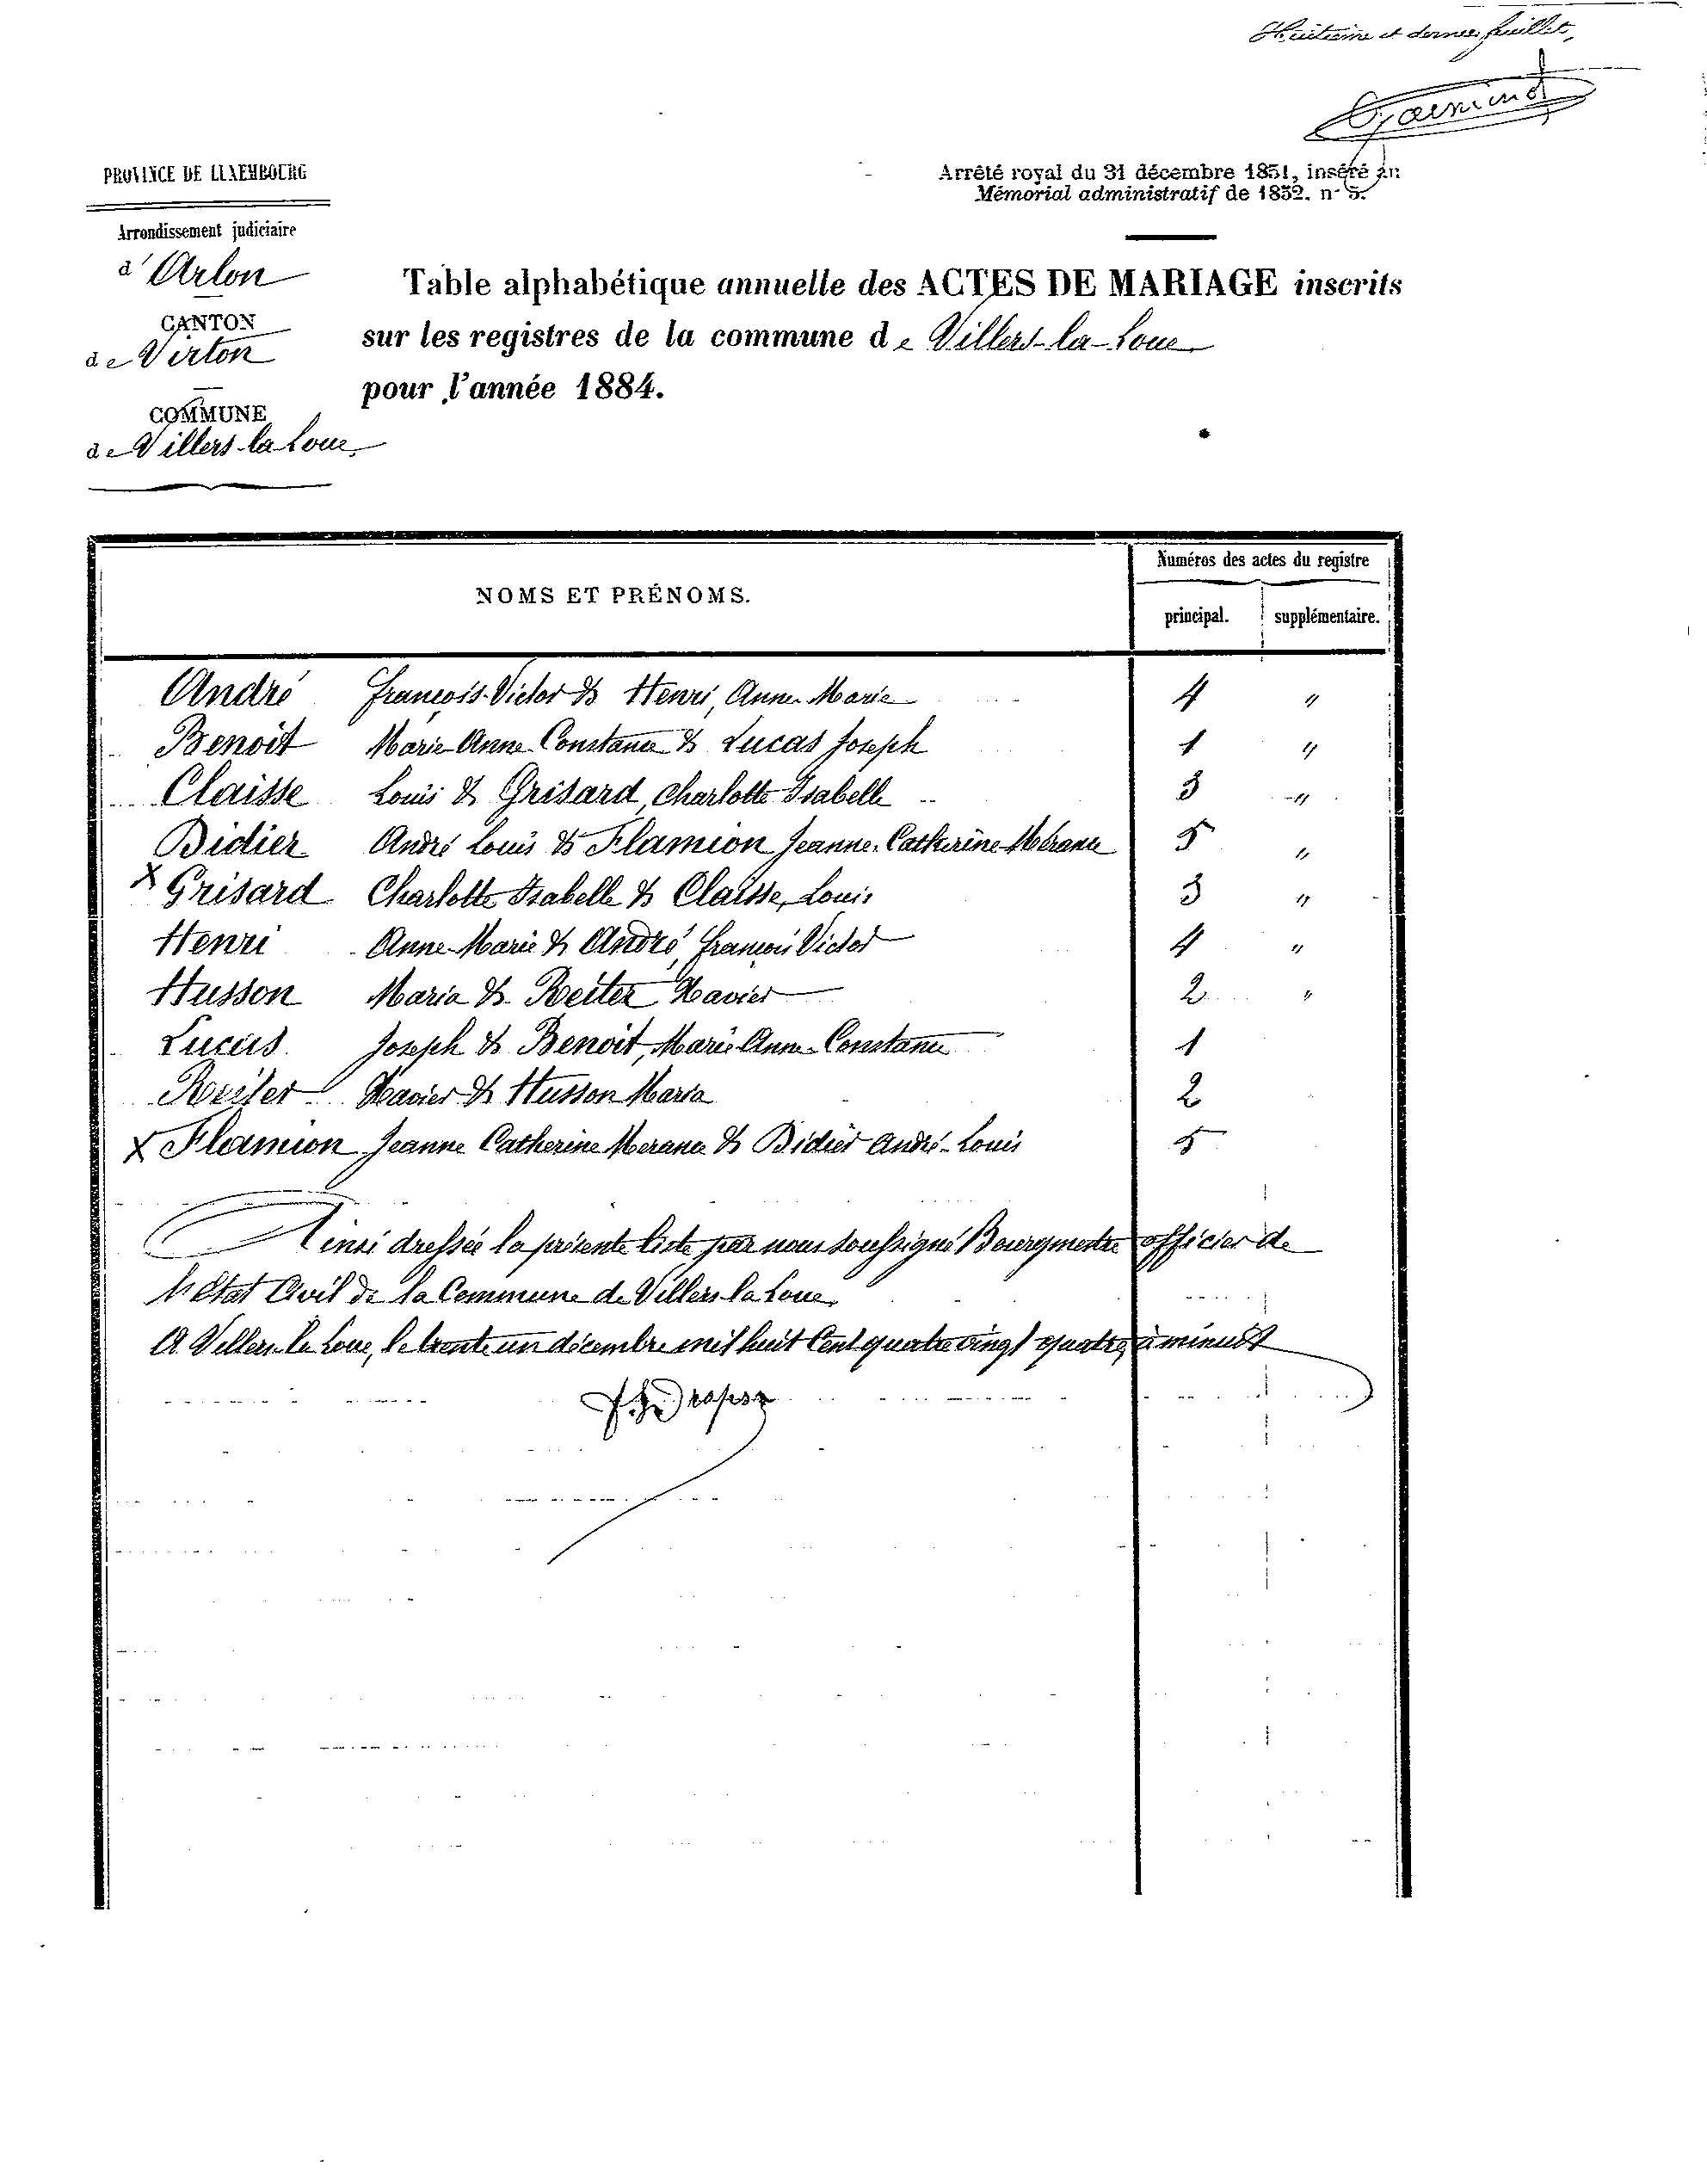 Huitième et dernier feuillet,
PROVINCE DE LUXEMBOURG
Arrêté royal du 31 décembre 1851, inséré au
Mémorial administratif de 1852. n° 5.
Arrondissement judiciaire
d'Arlon
CANTON
de Virton
COMMUNE
de Villers-la-Loue
Table alphabétique annuelle des ACTES DE MARIAGE inscrits
sur les registres de la commune de Villers-la-Loue
pour l'année 1884.
NOMS ET PRÉNOMS.
Numéros des actes du registre
principal. supplémentaire.
André François-Victor & Henri, Anne-Marie 4 "
Benoit Marie-Anne-Constance & Lucas Joseph 1 "
Claisse Louis & Grisard, Charlotte Isabelle 3 "
Didier André Louis & Flamion Jeanne-Catherine 5 "
X Grisard Charlotte Isabelle & Claisse, Louis 3 "
Henri Anne-Marie & André, François Victor 4 "
Husson Maria & Reiter Xavier 2 "
Lucas Joseph & Benoit, Marie Anne-Constance 1
Reiter Xavier & Husson Maria 2
X Flamion Jeanne Catherine & Didier André-Louis 5
Ainsi dressée la présente liste par nous soussigné Bourgmestre officier de
l'état Civil de la Commune de Villers-la-Loue,
A Villers-la-Loue, le trente un décembre mil huit Cent quatre vingt quatre, à minuit